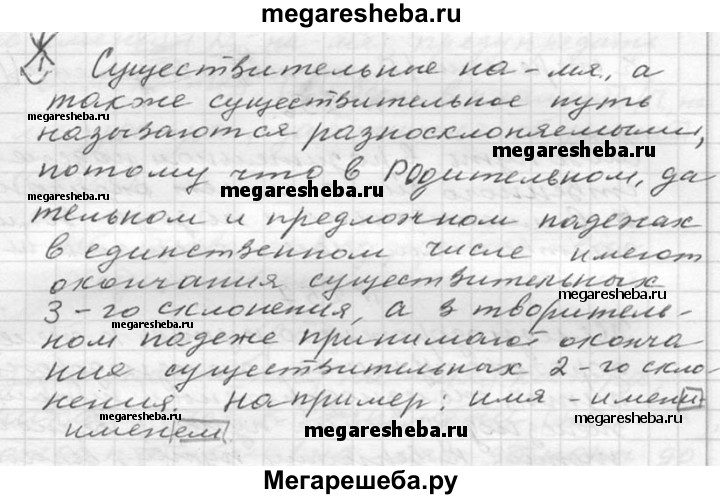 megaresheba.ru
Существительные на -мя, а
также существительное путь
megaresheba.ru
называются разносклоняемыми,
megaresheba.ru
потому что в Родительном, да
megaresheba.ru
megaresheba.ru
тельном и предложном падежах
в единственном числе имеют
окончания существительных
megaresheba.ru
3-го склонения, а в творитель-
megaresheba.ru
ном падеже принимают оконча
ния существительных 2-го скло
нения например: имя - имени
megaresheba.ru
megaresheba.ru
именем
megaresheba.ru
megaresheba.ru
Мегарешеба.ру